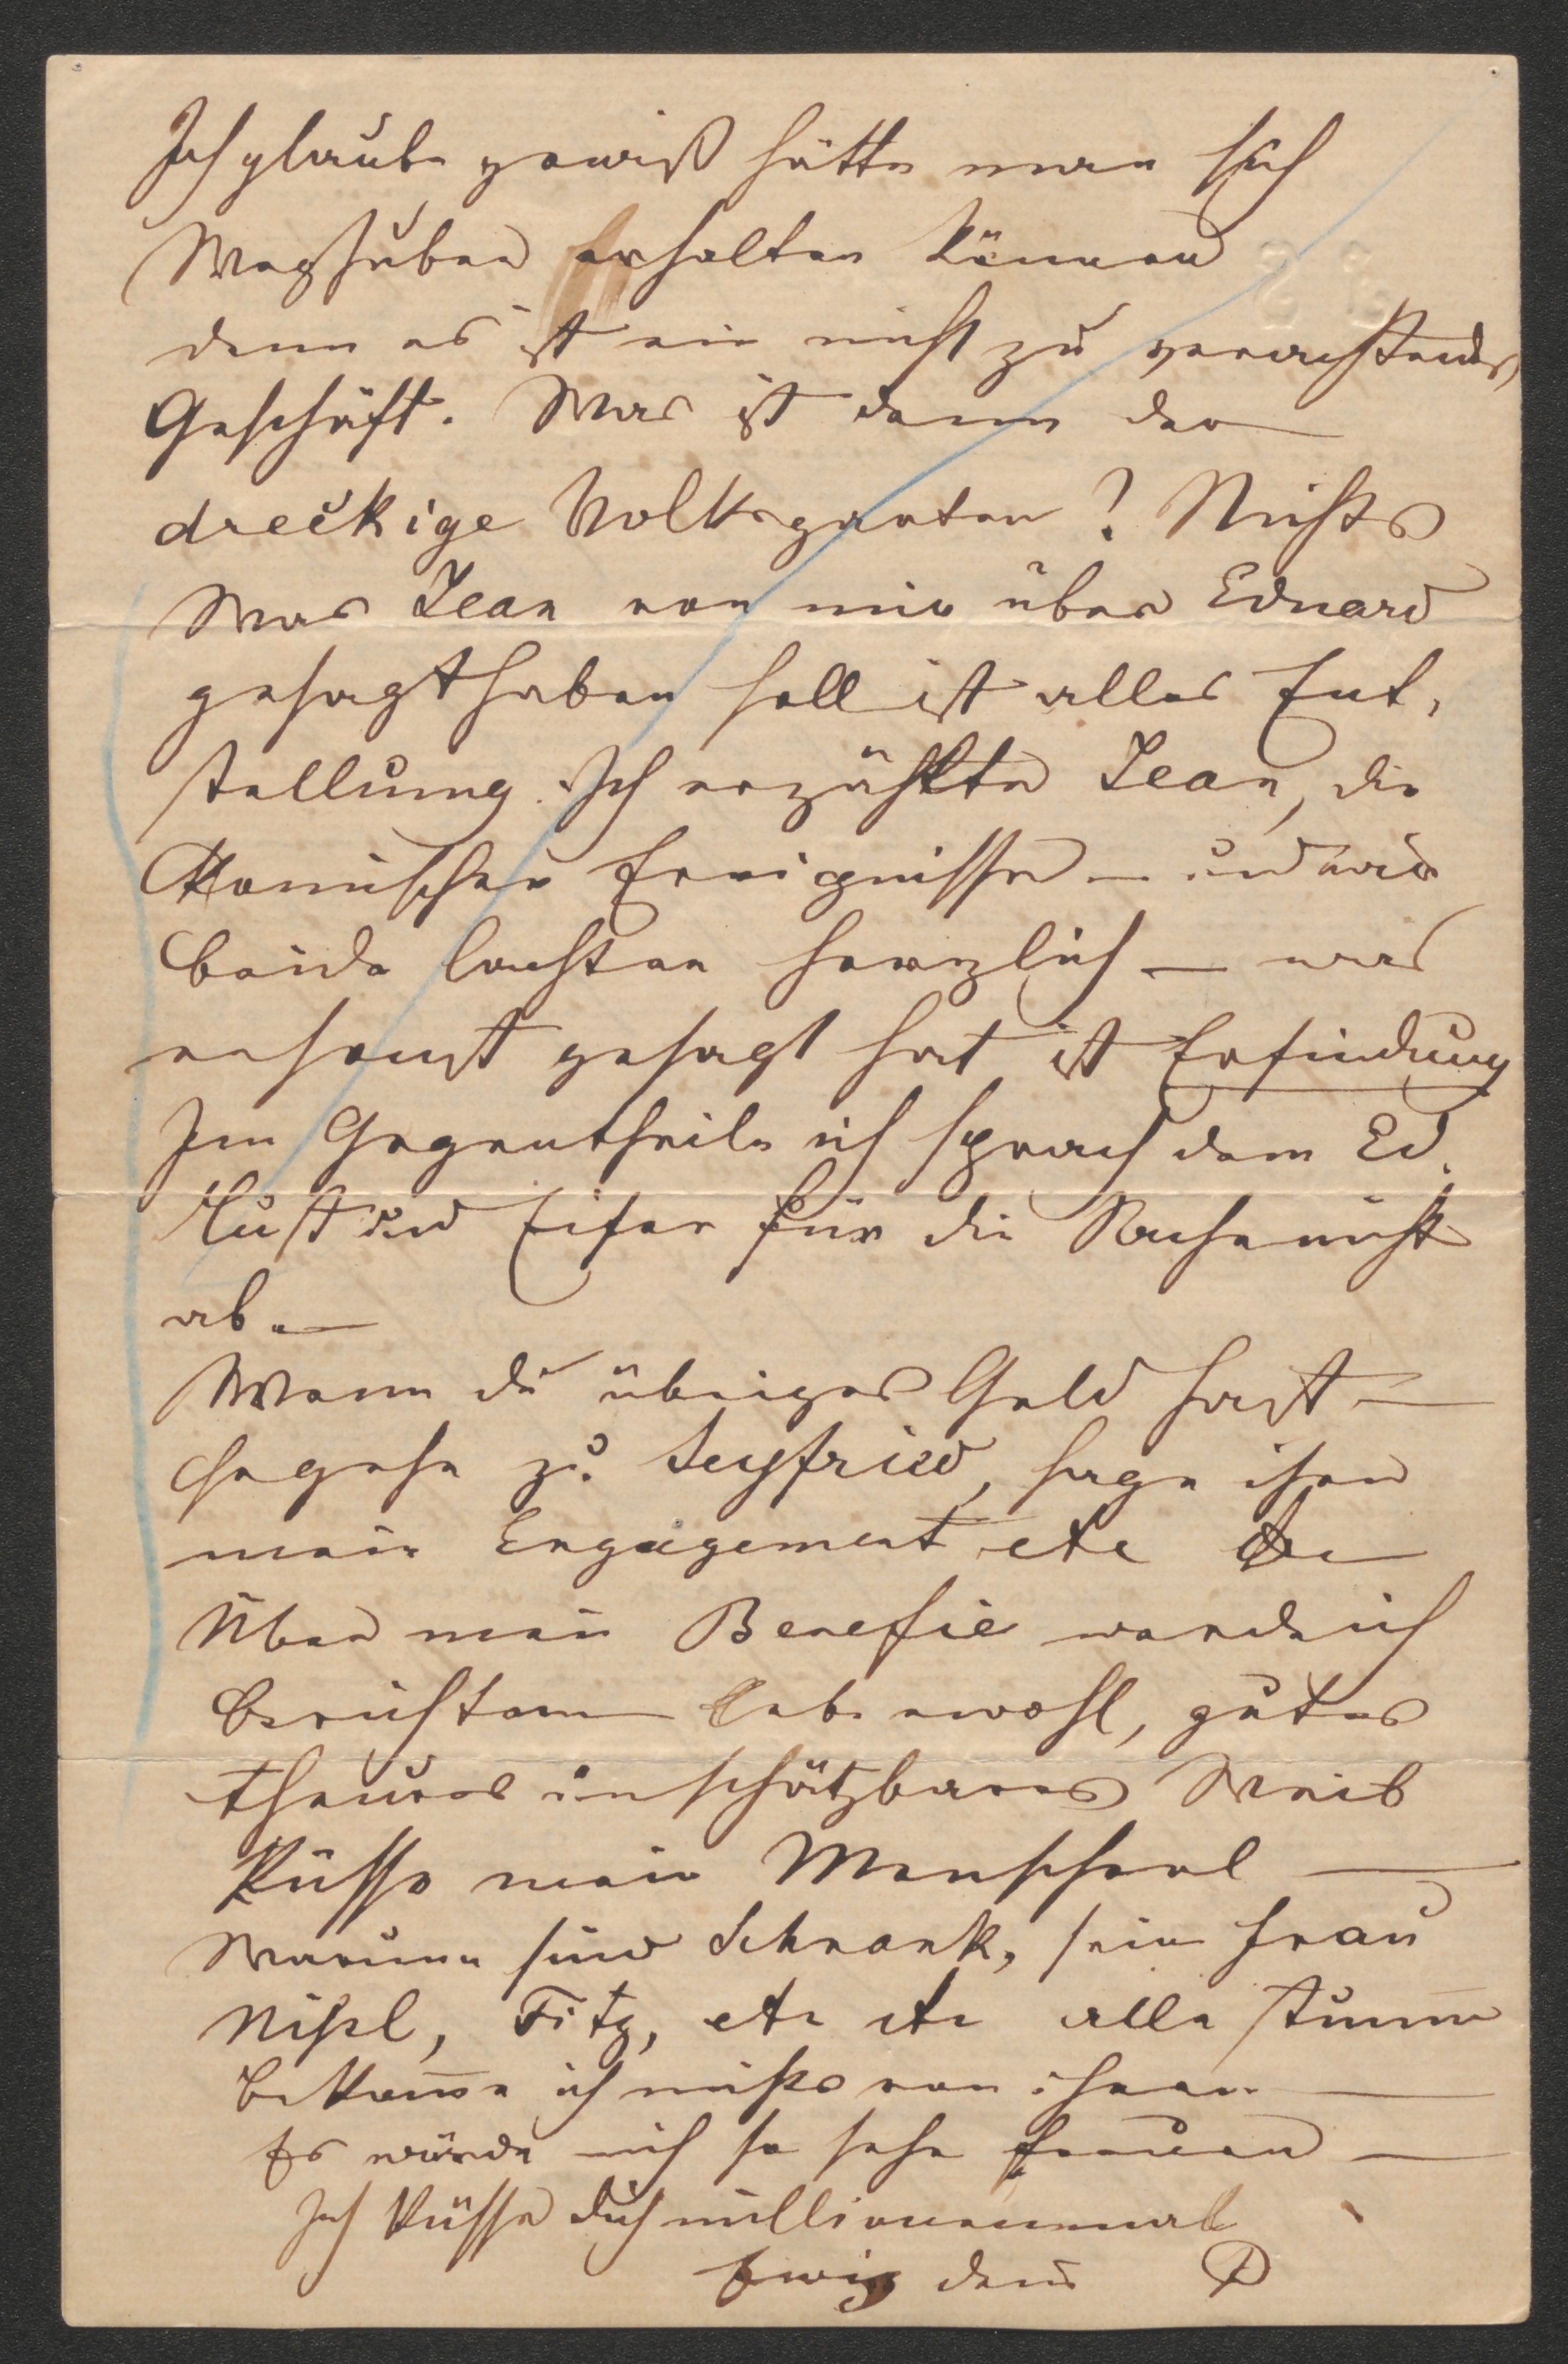 Ich glaube gewiß hätte man sich
Weghuber erhalten können
denn es ist ein nicht zu verachtendes
Geschäft. Was ist denn der
dreckige Volksgarten? Nichts
Was Jean von mir über Eduard
gesagt haben soll ist alles Ent,
stellung. Ich erzählte Jean, die
komischen Ereignisse – und wir
beide lachten herzlich – was
er sonst gesagt hat ist Erfindung
Im Gegentheile ich sprach dem Ed.
Lust und Eifer für die Sache nicht
ab. –
Wenn du übriges Geld hast –
so gehe zu Seyfried, sage ihm
mein Engagement etc etc
Über mein Benefice werde ich
berichten Lebe wohl, gutes
theures unschätzbares Weib
Küsse mein Menscherl –
Warum sind Schrank, seine Frau
Nißl, Fitz, etc etc alle stumm
bekomme ich nichts von ihnen –
Es würde mich so sehr freuen –
Ich küsse dich millionenmal
Ewig dein